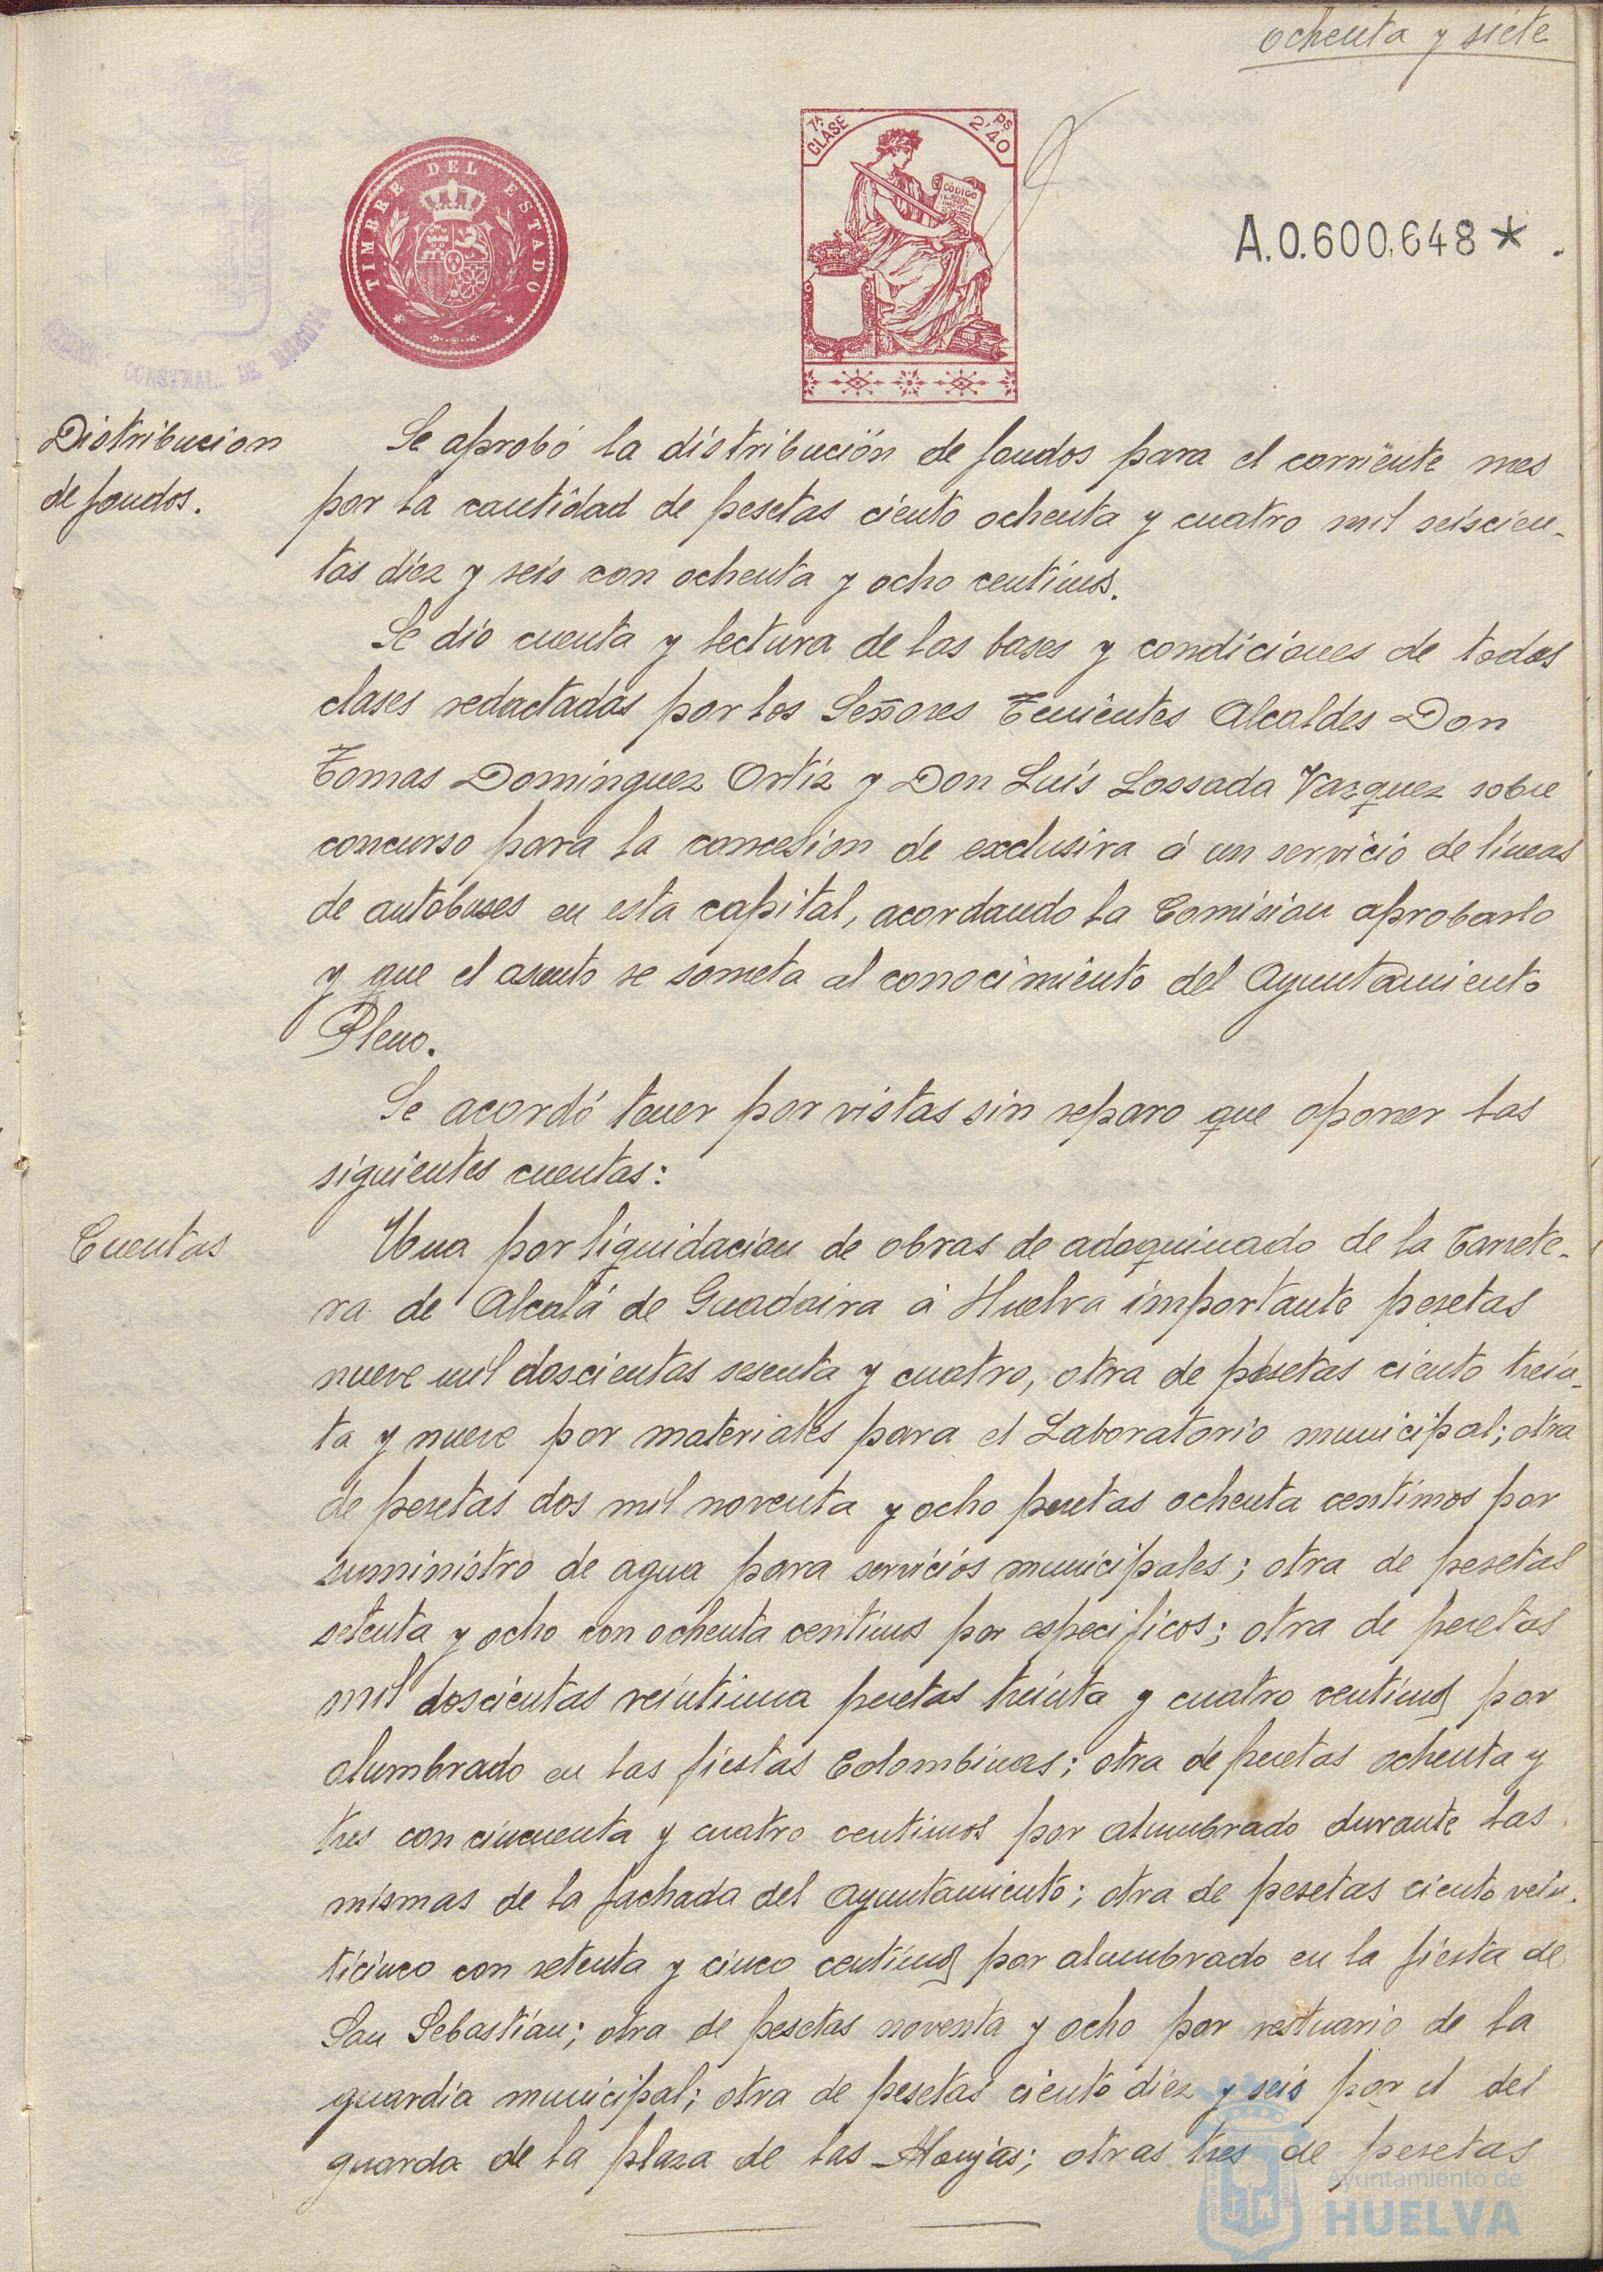 ochenta y siete
TIMBRE DEL ESTADO
7ª CLASE
2'40 Ps
CODIGO
A.0.600.648*
CONSTNAL. DE HUELVA
Distribucion
de fondos.
Se aprobó la distribución de fondos para el corriente mes
por la cantidad de pesetas ciento ochenta y cuatro mil seiscien-
tas diez y seis con ochenta y ocho centimos.
Se dió cuenta y lectura de las bases y condiciones de todas
clases redactadas por los Señores Tenientes Alcaldes Don
Tomas Dominguez Ortiz y Don Luis Lossada Vazquez sobre
concurso para la concesion de exclusiva á un servicio de líneas
de autobuses en esta capital, acordando la Comision aprobarlo
y que el asunto se someta al conocimiento del Ayuntamiento
Pleno.
Se acordó tener por vistas sin reparo que oponer las
siguientes cuentas:
Cuentas
Una por liquidacion de obras de adoquinado de la Carrete-
ra de Alcalá de Guadaira á Huelva importante pesetas
nueve mil doscientas sesenta y cuatro, otra de pesetas ciento trein-
ta y nueve por materiales para el Laboratorio municipal; otra
de pesetas dos mil noventa y ocho pesetas ochenta centimos por
suministro de agua para servicios municipales; otra de pesetas
setenta y ocho con ochenta centimos por especificos; otra de pesetas
mil doscientas veintiuna pesetas treinta y cuatro centimos por
alumbrado en las fiestas Colombinas; otra de pesetas ochenta y
tres con cincuenta y cuatro centimos por alumbrado durante las
mismas de la fachada del Ayuntamiento; otra de pesetas ciento vein-
ticinco con setenta y cinco centimos por alumbrado en la fiesta de
San Sebastián; otra de pesetas noventa y ocho por vestuario de la
guardia municipal; otra de pesetas ciento diez y seis por el del
guarda de la plaza de las Monjas; otras tres de pesetas
Ayuntamiento de
HUELVA